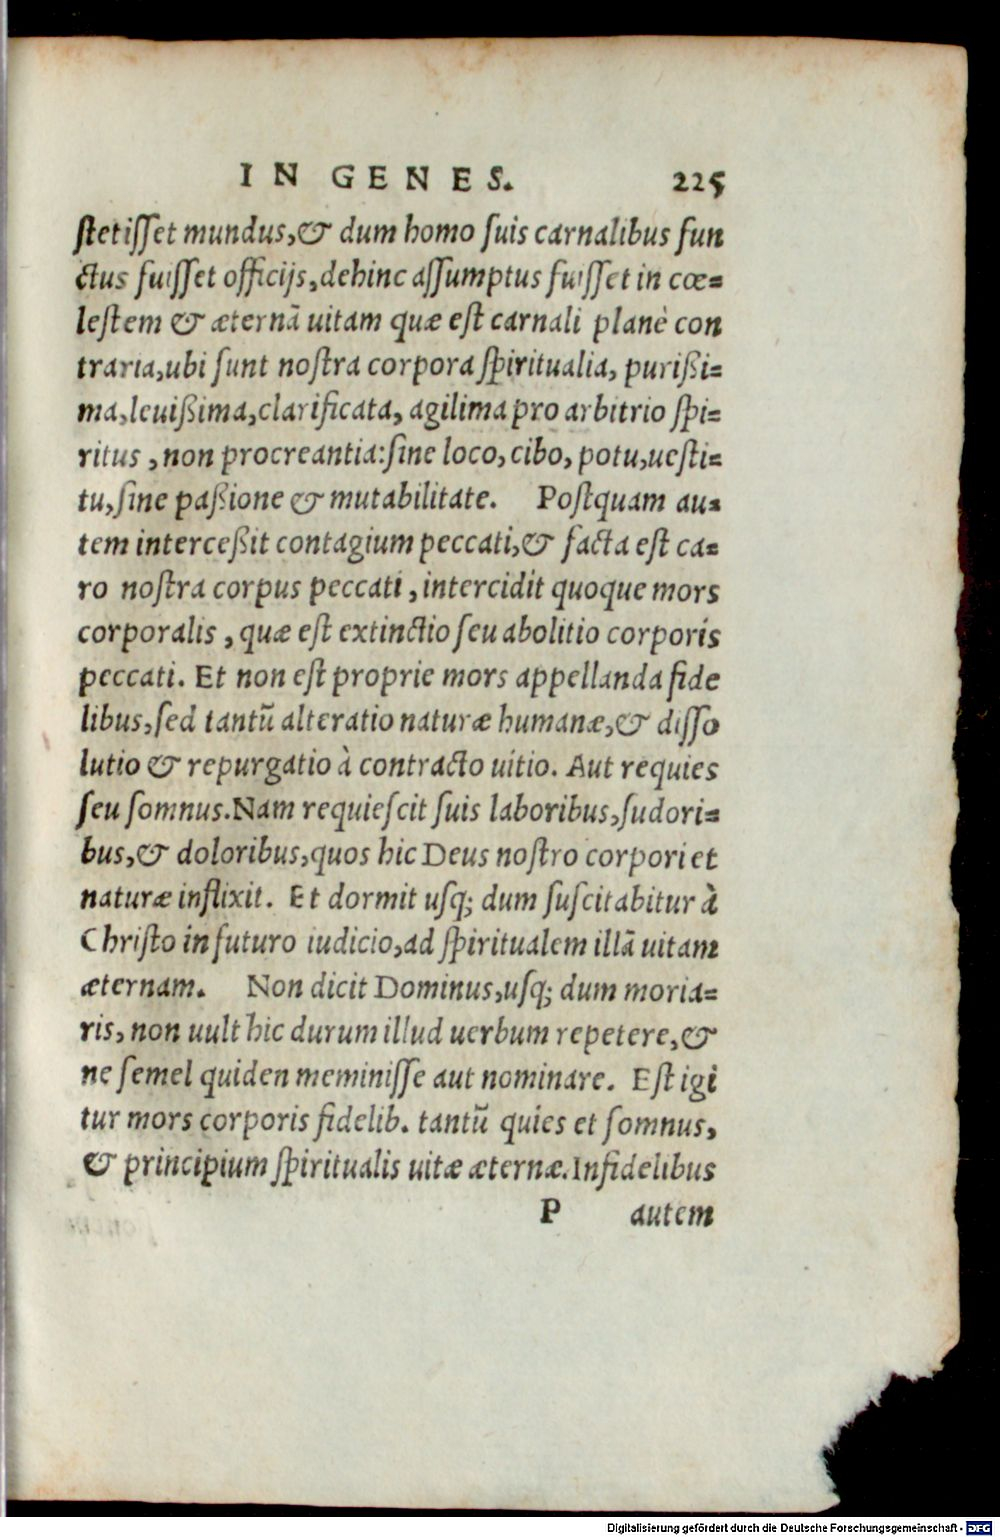 IN GENES. 225
stetisset mundus,& dum homo suis carnalibus fun
ctus fuisset officijs,dehinc assumptus fuisset in cœ=
lestem & æternā uitam quæ est carnali planè con
traria,ubi sunt nostra corpora spiritualia, purißi=
ma,leuißima,clarificata, agilima pro arbitrio spi=
ritus ,non procreantia:sine loco,cibo,potu,uesti=
tu,sine paßione & mutabilitate. Postquam au=
tem interceßit contagium peccati,& facta est ca=
ro nostra corpus peccati ,intercidit quoque mors
corporalis , quæ est extinctio seu abolitio corporis
peccati. Et non est proprie mors appellanda fide
libus,sed tantū alteratio naturæ humanæ,& disso
lutio & repurgatio à contracto uitio. Aut requies
seu somnus.Nam requiescit suis laboribus,sudori=
bus,& doloribus,quos hic Deus nostro corpori et
naturæ inflixit. Et dormit usq; dum suscitabitur à
Christo in futuro iudicio,ad spiritualem illā uitam
æternam. Non dicit Dominus,usq; dum moria=
ris, non uult hic durum illud uerbum repetere,&
ne semel quiden meminisse aut nominare. Est igi
tur mors corporis fidelib. tantū quies et somnus,
& principium spiritualis uitæ æternæ.Infidelibus
P autem
Digitalisierung gefördert durch die Deutsche Forschungsgemeinschaft - DFG